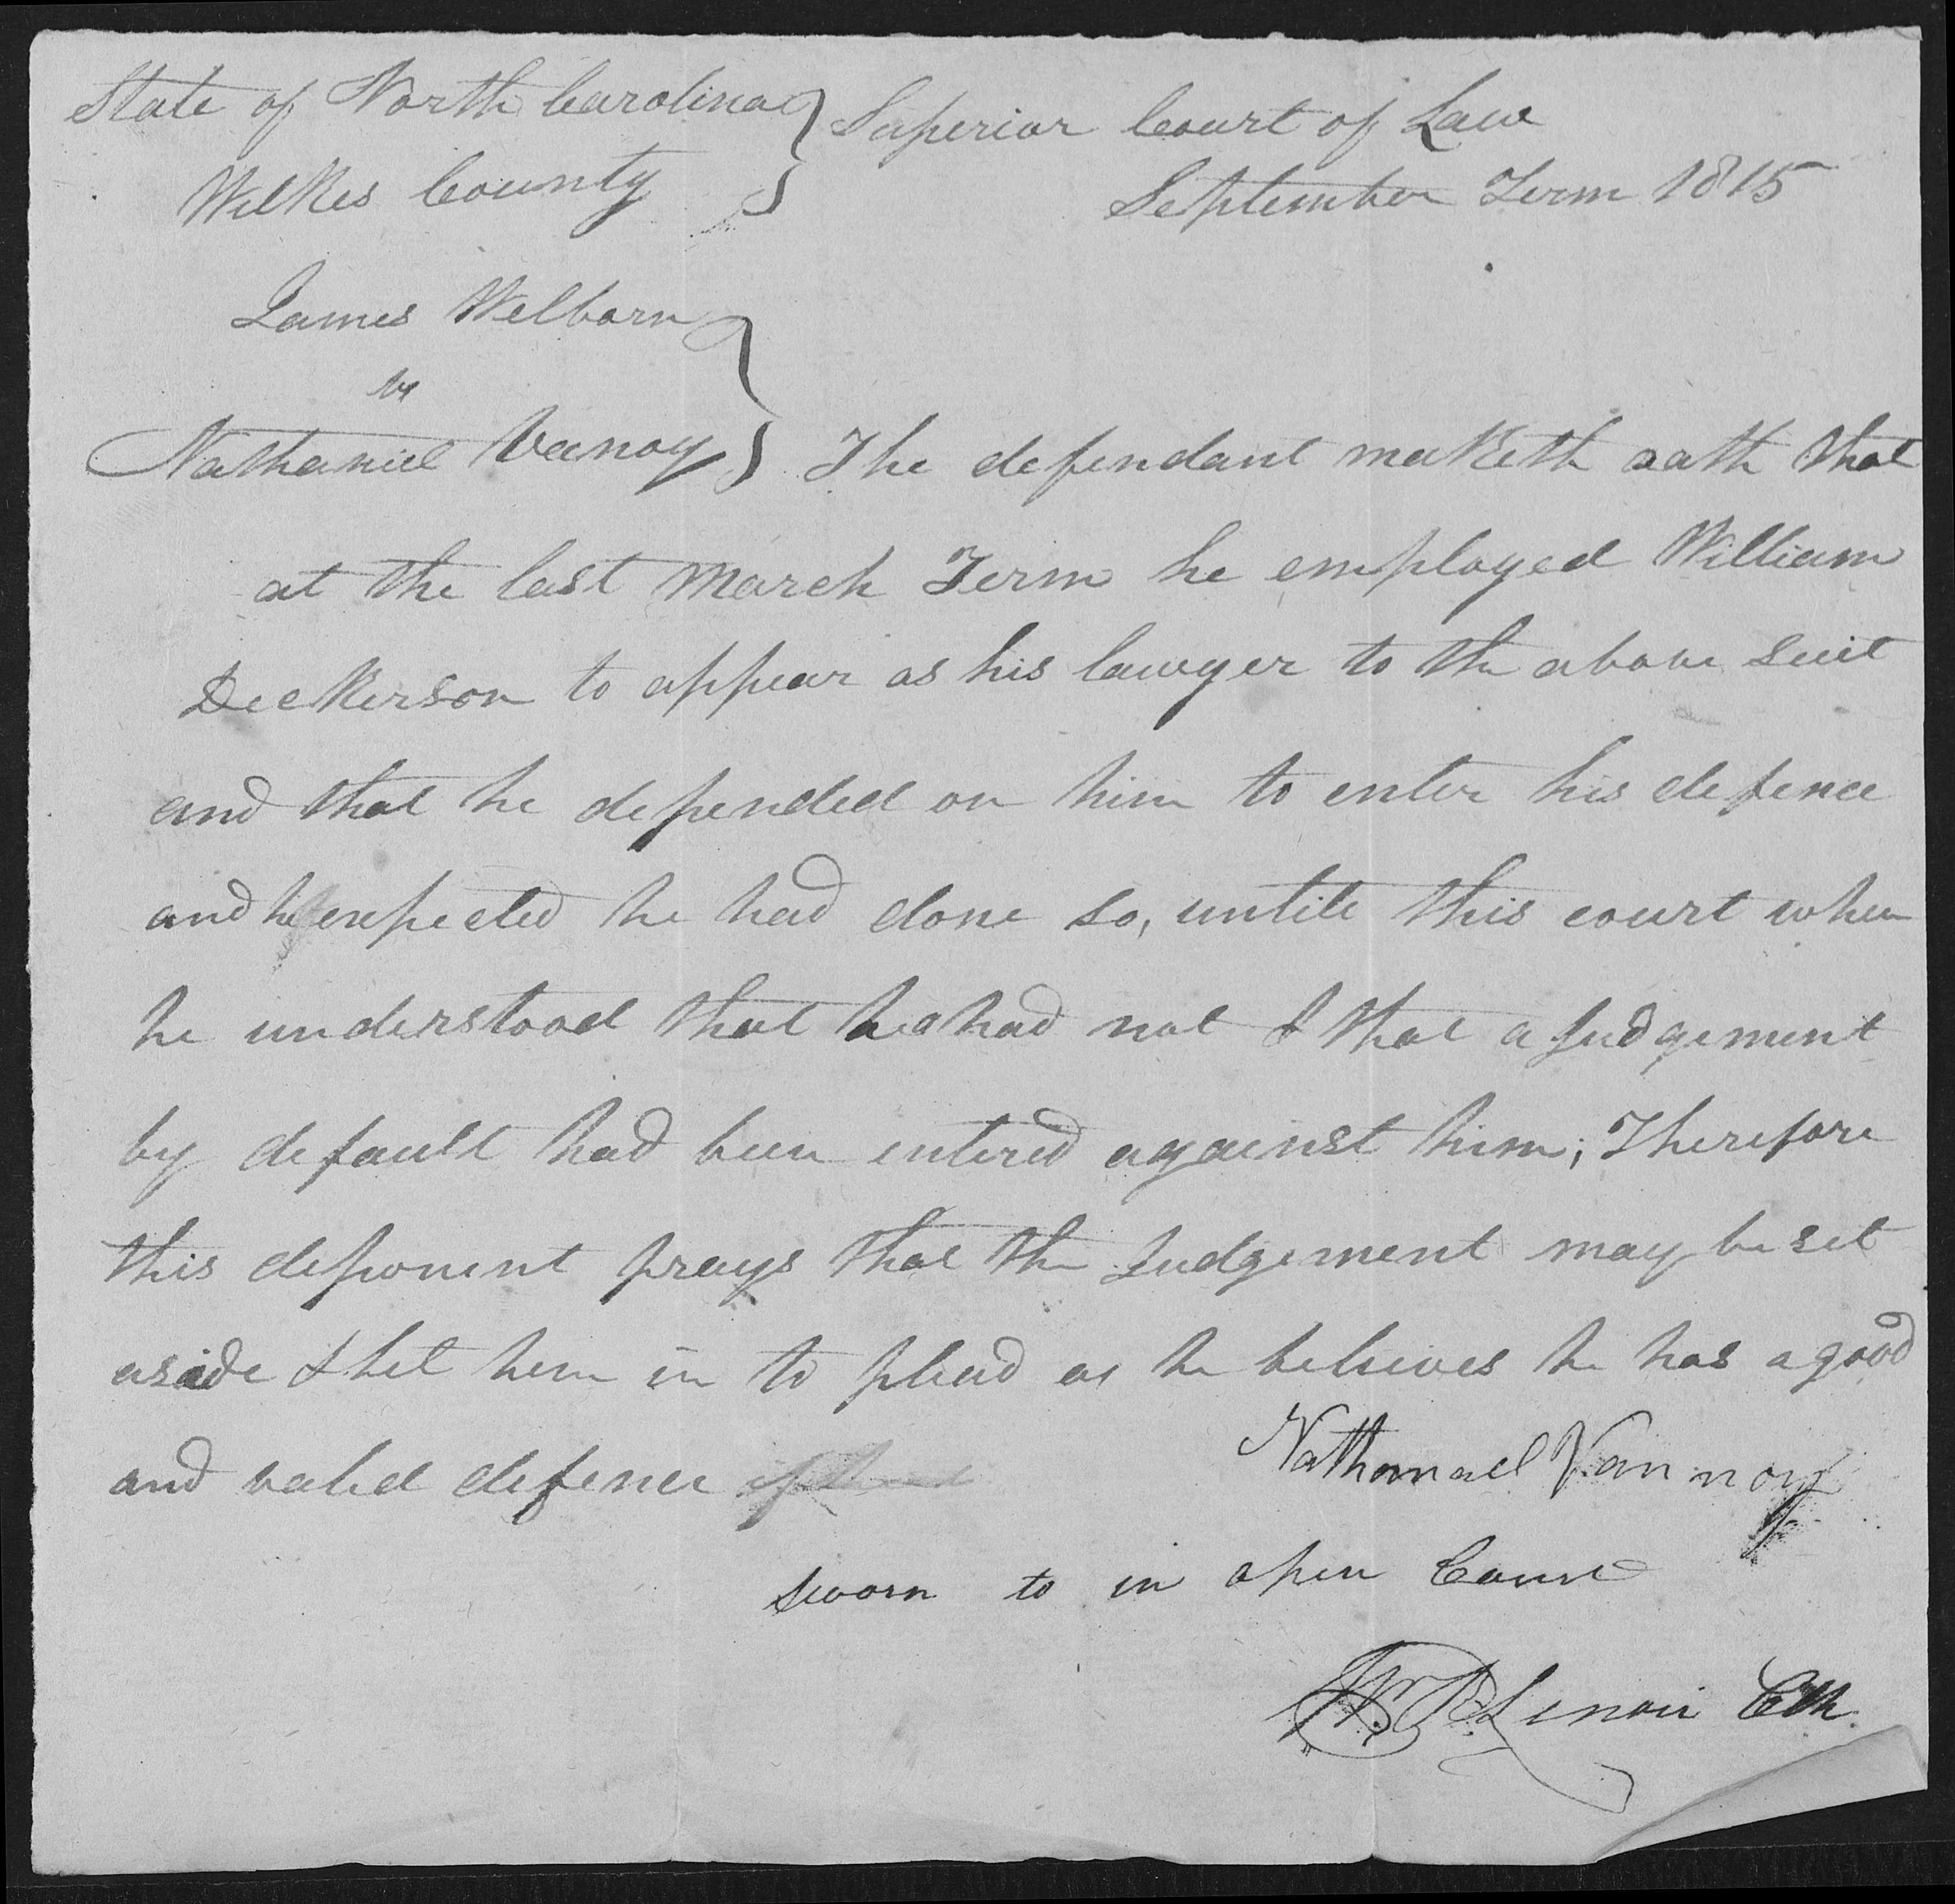 State of North Carolina } Superior Court of Law
Wilkes County } September Term 1815
James Welborn
vs
Nathaniel Vanoy } The defendant maketh oath that
at the last March Term he employed William
Dickerson to appear as his lawyer to the above suit
and that he depended on him to enter his defence
and he expected he had done so, untile this court when
he understood that he had not & that a Judgement
by default had been entered against him; Therefore
this deponent prays that the Judgement may be set
aside & let him in to plead as he believes he has a good
and valid defence
Nathanael Vannoy
sworn to in open Court
Wm. P. Lenoir Clk